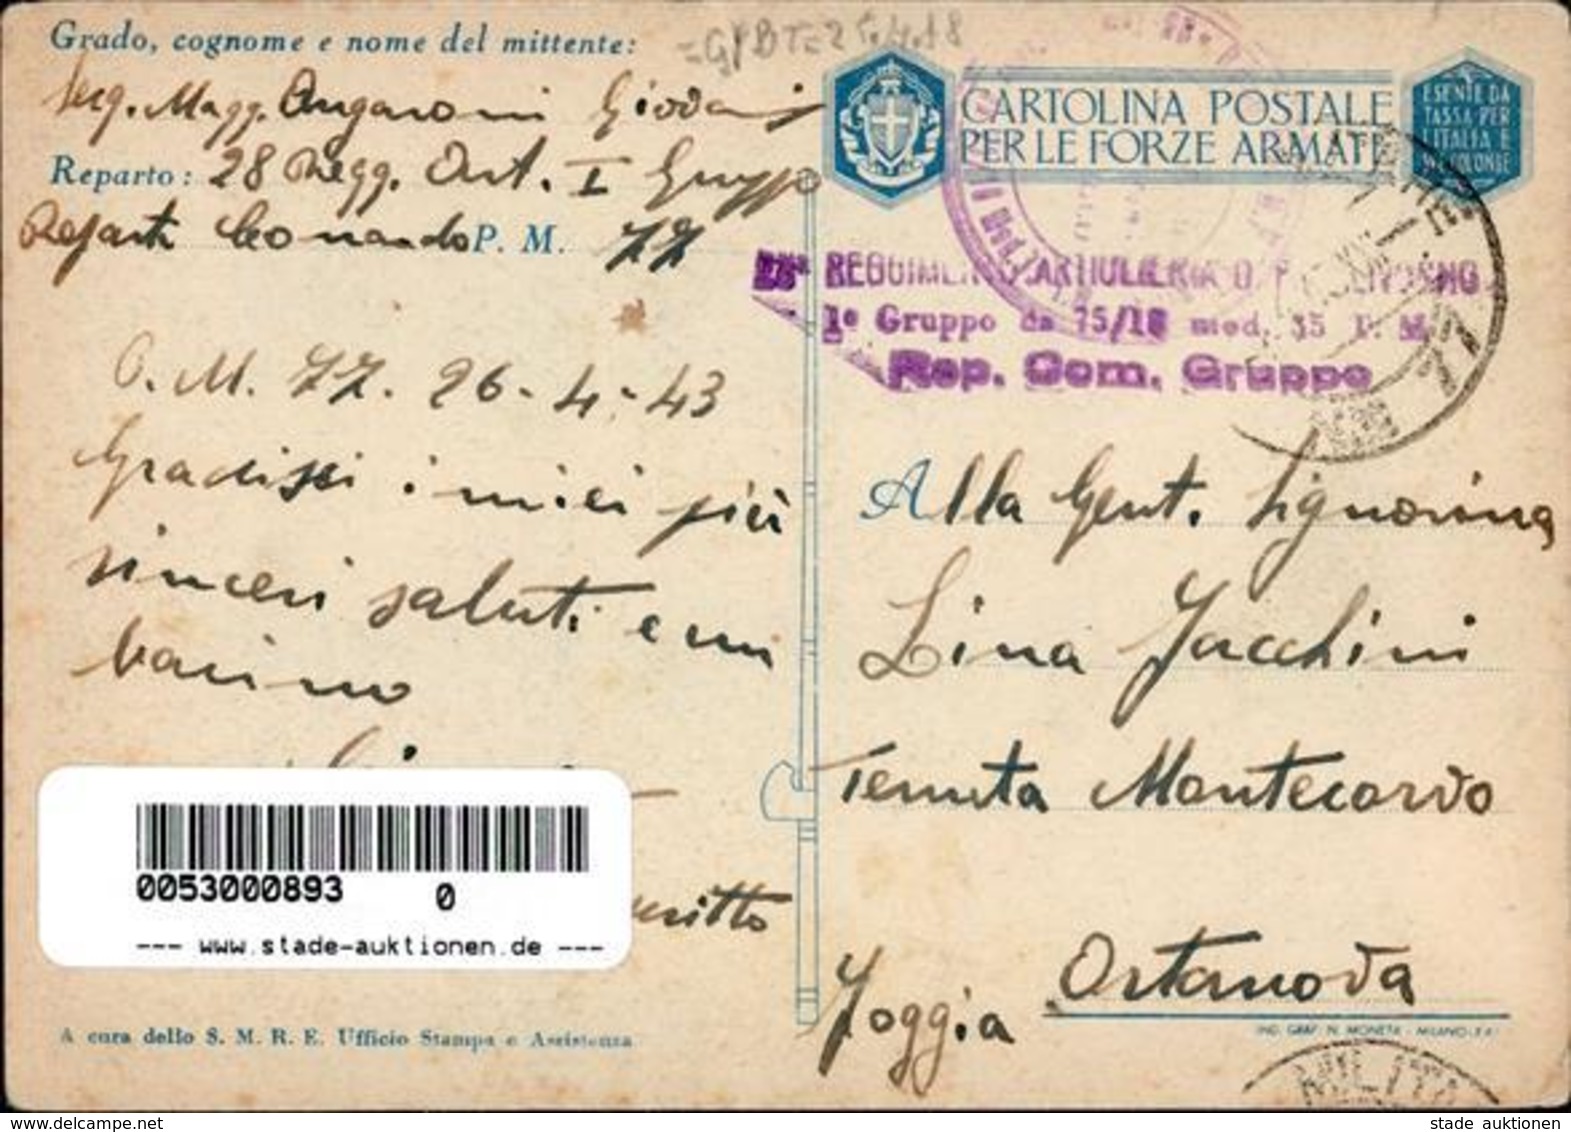 Grado, cognome e nome del mittente:
Serg. Magg. Angaroni Giovanni
Reparto: 28 Regg. Art. I Gruppo
Reparto Comando P. M. 77
P. M. 77. 26-4-43
Gradisci i miei più
sinceri saluti e un
bacino
0053000893 0
--- www.stade-auktionen.de ---
A cura dello S. M. R. E. Ufficio Stampa e Assistenza
CARTOLINA POSTALE
PER LE FORZE ARMATE
ESENTE DA
TASSA PER
L'ITALIA E
REGGIMENTO ARTIGLIERIA D. F. LIVORNO
1° Gruppo da 75/18 mod. 35 P. M.
Rep. Com. Gruppo
77
Alla Gent. Signorina
Lina Jacchini
Tenuta Montecorvo
Ortanova
Foggia
IND. GRAF. N. MONETA - MILANO
MILITA
stade auktionen
www.delcampe.net